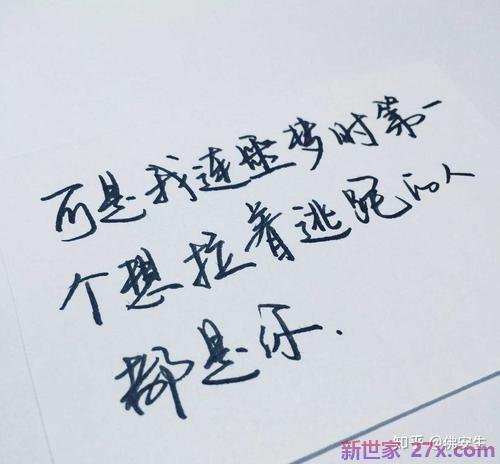 可是我连噩梦时第一
个想拉着逃跑的人
都是你.
知乎 @佛安生
新世家·27x.com